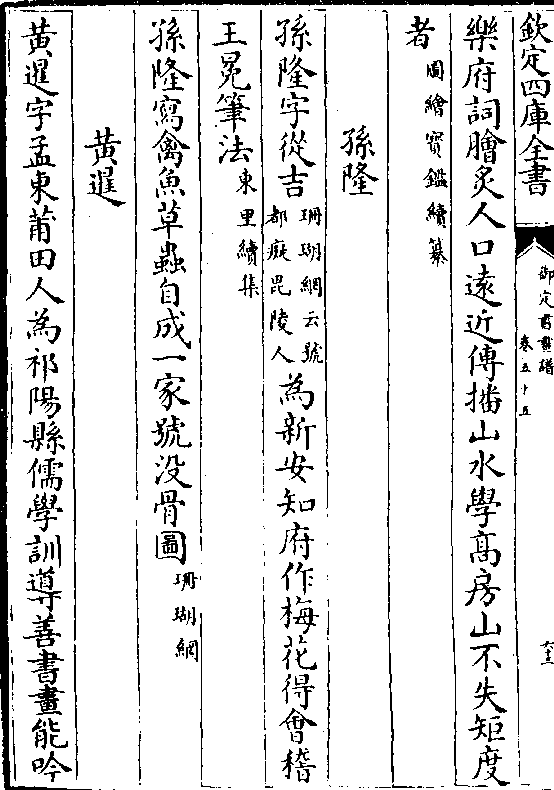 欽定四庫全書
御定書畫譜
卷五十五
六三
樂府詞膾炙人口遠近傳播山水學髙房山不失矩度
者圖繪寳鑑續纂
孫隆
孫隆字從吉珊瑚網云號都癡毘陵人為新安知府作梅花得會稽
王冕筆法東里續集
孫隆寫禽魚草蟲自成一家號没骨圖珊瑚網
黃暹
黃暹字孟東莆田人為祁陽縣儒學訓導善書畫能吟